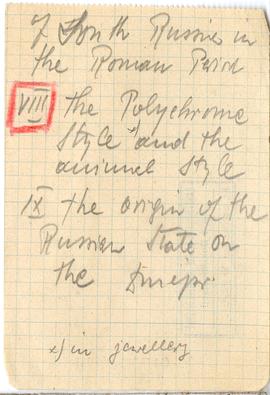 of South Russia in
the Roman Period
VIII the Polychrome
Style and the
animal style
IX the origin of the
Russian State on
the Dniepr
x) in jewellery